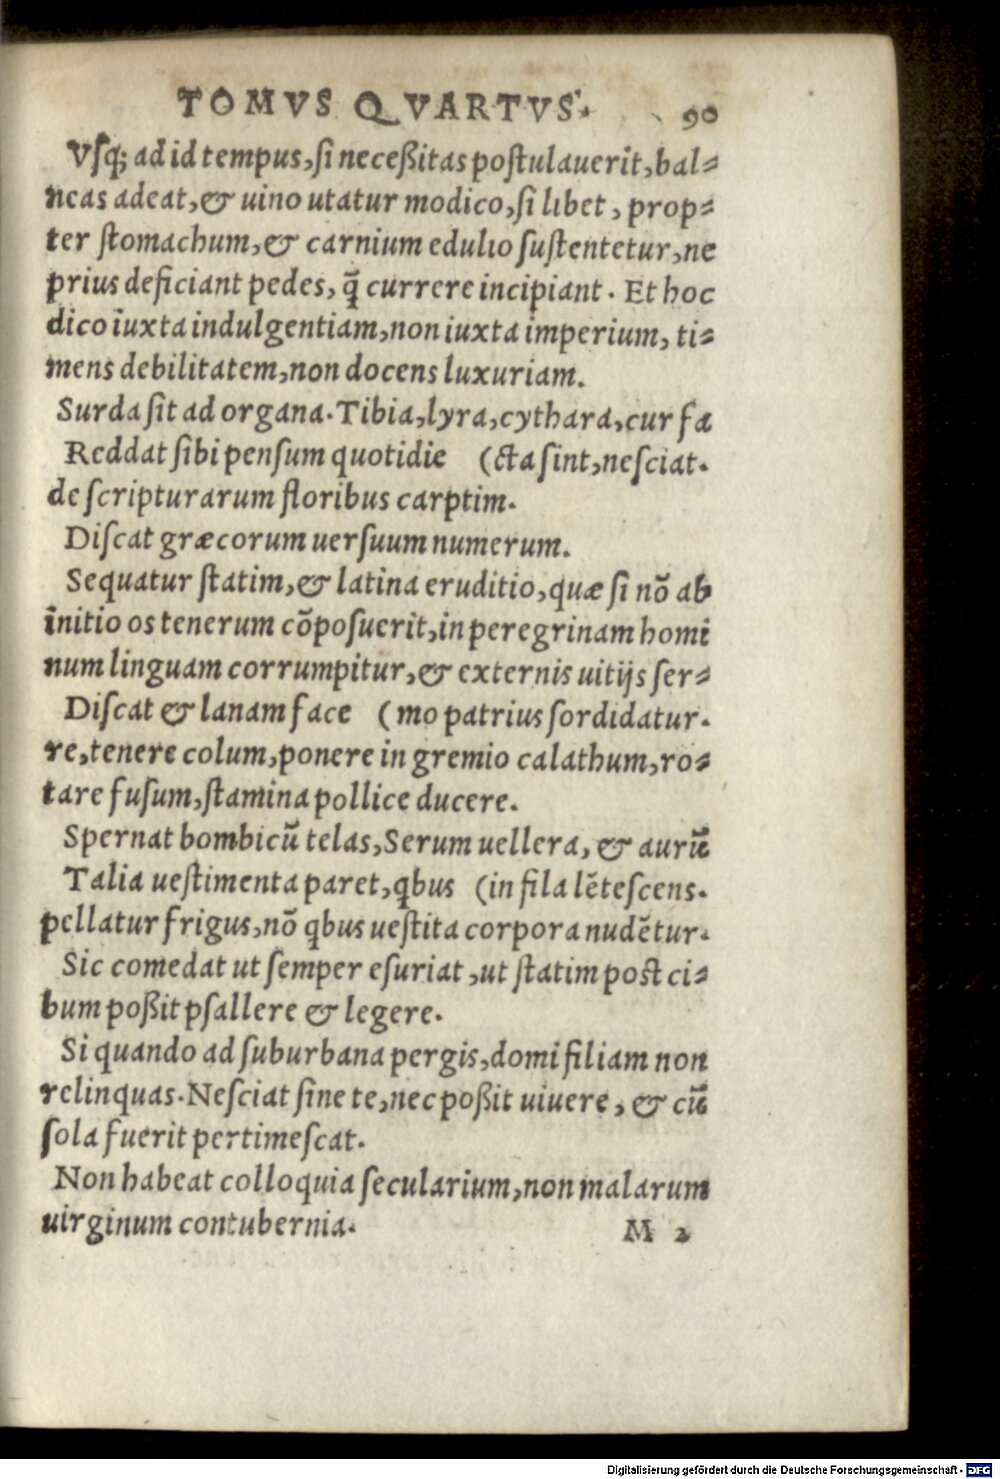 TOMVS QVARTVS. 90
Vſq; ad id tempus, ſi neceßitas poſtulauerit, bal⸗
neas adeat, & uino utatur modico, ſi libet, prop⸗
ter ſtomachum, & carnium edulio ſuſtentetur, ne
prius deficiant pedes, q̃ currere incipiant. Et hoc
dico iuxta indulgentiam, non iuxta imperium, ti⸗
mens debilitatem, non docens luxuriam.
Surda ſit ad organa. Tibia, lyra, cythara, cur fa
Reddat ſibi penſum quotidie (cta ſint, neſciat.
de ſcripturarum floribus carptim.
Diſcat græcorum uerſuum numerum.
Sequatur ſtatim, & latina eruditio, quæ ſi nõ ab
initio os tenerum cõpoſuerit, in peregrinam homi
num linguam corrumpitur, & externis uitijs ſer⸗
Diſcat & lanam face (mo patrius ſordidatur.
re, tenere colum, ponere in gremio calathum, ro⸗
tare fuſum, ſtamina pollice ducere.
Spernat bombicũ telas, Serum uellera, & aurũ
Talia ueſtimenta paret, qbus (in fila lẽteſcens.
pellatur frigus, nõ qbus ueſtita corpora nudẽtur.
Sic comedat ut ſemper eſuriat, ut ſtatim poſt ci⸗
bum poßit pſallere & legere.
Si quando ad ſuburbana pergis, domi filiam non
relinquas. Neſciat ſine te, nec poßit uiuere, & cũ
ſola fuerit pertimeſcat.
Non habeat colloquia ſecularium, non malarum
uirginum contubernia. M 2
Digitalisierung gefördert durch die Deutsche Forschungsgemeinschaft - DFG